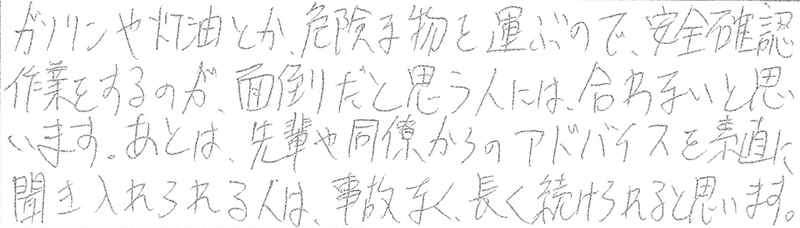 ガソリンや灯油とか、危険な物を運ぶので、安全確認
作業をするのが、面倒だと思う人には、合わないと思
います。あとは、先輩や同僚からのアドバイスを素直に
聞き入れられる人は、事故なく、長く続けられると思います。